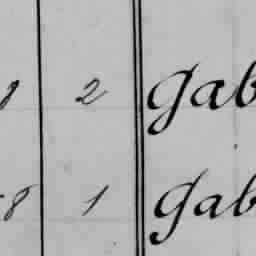 8 2 Gab
8 1 Gab